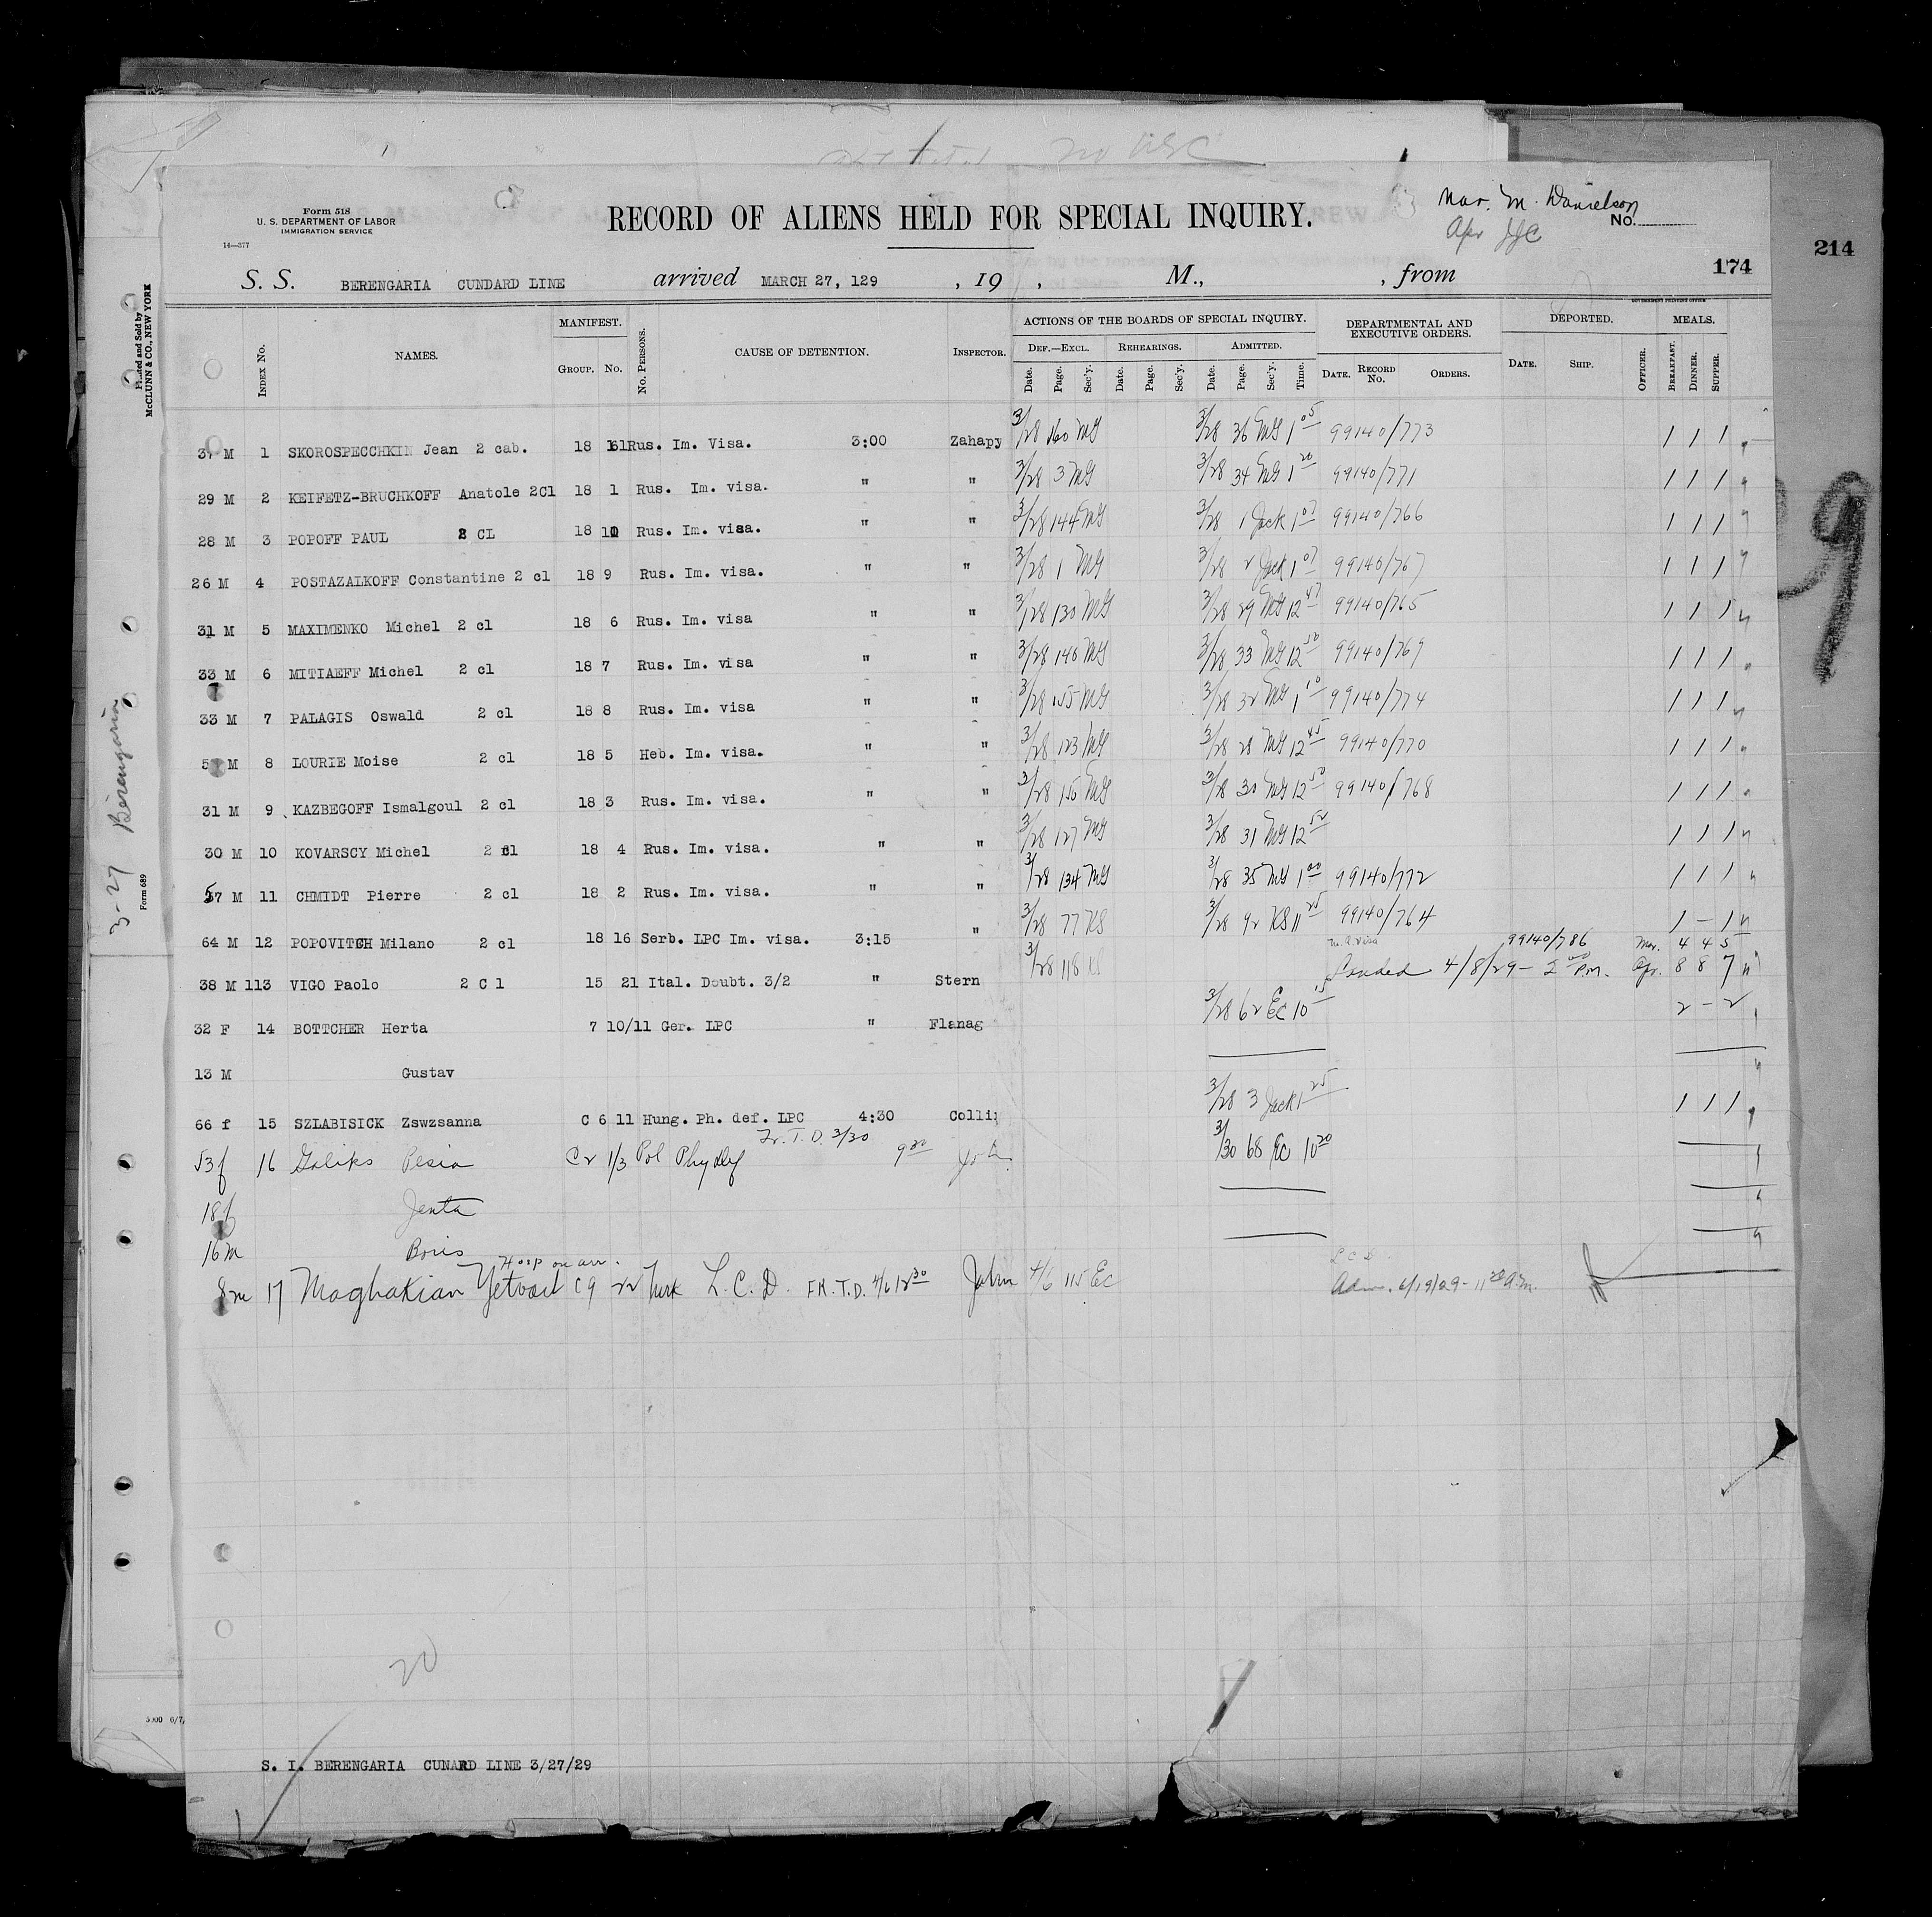 Form 518
U. S. DEPARTMENT OF LABOR
IMMIGRATION SERVICE
14—377
RECORD OF ALIENS HELD FOR SPECIAL INQUIRY.
Mar. M. Danielson
No.
Apr JJC
214
174
S. S. BERENGARIA CUNDARD LINE arrived MARCH 27, 129 , 19 , M., , from
GOVERNMENT PRINTING OFFICE
Printed and Sold by
McCLUNN & CO., NEW YORK
Index No. NAMES. MANIFEST. Group. No. No. Persons. CAUSE OF DETENTION. Inspector. ACTIONS OF THE BOARDS OF SPECIAL INQUIRY. DEPARTMENTAL AND EXECUTIVE ORDERS. DEPORTED. MEALS.
Def.—Excl. Rehearings. Admitted.
Date. Page. Sec'y. Date. Page. Sec'y. Date. Page. Sec'y. Time. Date. Record No. Orders. Date. Ship. Officer. Breakfast. Dinner. Supper.
37 M 1 SKOROSPECCHKIN Jean 2 cab. 18 Rus. Im. Visa. 3:00 Zahapy 3/28 160 MG 3/28 36 MG 1 05 99140/773 1 1 1
29 M 2 KEIFETZ-BRUCHKOFF Anatole 2Cl 18 1 Rus. Im. visa. " " 3/28 3 MG 3/28 34 MG 1 20 99140/771 1 1 1
28 M 3 POPOFF PAUL 2 CL 18 10 Rus. Im. visa. " " 3/28 144 MG 3/28 1 Jack 1 07 99140/766 1 1 1
26 M 4 POSTAZALKOFF Constantine 2 cl 18 9 Rus. Im. visa. " " 3/28 1 MG 3/28 2 Jack 1 07 99140/767 1 1 1
31 M 5 MAXIMENKO Michel 2 cl 18 6 Rus. Im. visa " " 3/28 130 MG 3/28 29 MG 12 47 99140/765 1 1 1
33 M 6 MITIAEFF Michel 2 cl 18 7 Rus. Im. visa " " 3/28 140 MG 3/28 33 MG 12 50 99140/769 1 1 1
33 M 7 PALAGIS Oswald 2 cl 18 8 Rus. Im. visa " " 3/28 155 MG 3/28 32 MG 1 10 99140/774 1 1 1
M 8 LOURIE Moise 2 cl 18 5 Heb. Im. visa. " " 3/28 123 MG 3/28 28 MG 12 45 99140/770 1 1 1
31 M 9 KAZBEGOFF Ismalgoul 2 cl 18 3 Rus. Im. visa. " " 3/28 150 MG 3/28 30 MG 12 50 99140/768 1 1 1
30 M 10 KOVARSCY Michel 2 cl 18 4 Rus. Im. visa. " " 3/28 127 MG 3/28 31 MG 12 52 1 1 1
57 M 11 CHMIDT Pierre 2 cl 18 2 Rus. Im. visa. " " 3/28 134 MG 3/28 35 MG 1 00 99140/772 1 1 1
64 M 12 POPOVITCH Milano 2 cl 18 16 Serb. LPC Im. visa. 3:15 " 3/28 77 KS 3/28 92 KS 11 25 99140/764 1 — 1
99140/786 Mar. 4 4 5
38 M 113 VIGO Paolo 2 C l 15 21 Ital. Doubt. 3/2 " Stern 3/28 118 KS Landed 4/8/29 - 2 00 P.M. Apr. 8 8 7
32 F 14 BOTTCHER Herta 7 10/11 Ger. LPC " Flanag 3/28 62 EC 10 15 2 — 2
13 M Gustav
66 f 15 SZLABISICK Zswzsanna C 6 11 Hung. Ph. def. LPC 4:30 Colli 3/28 3 Jack 1 25 1 1 1
Fr. T. D. 3/30
53 f 16 Goliks Pesia C2 1/3 Pol Phy def 9 00 Joh 3/30 68 EC 10 20
18 f Jenta
16 m Boris
Hosp on arr.
8 m 17 Moghakian Yetvart C9 22 Turk L. C. D. FR. T. D. 4/6 12 30 John 4/6 115 EC L C D
Adm. 6/19/29 - 11 20 A.M.
3-27 Berengaria
Form 689
20
S. I. BERENGARIA CUNARD LINE 3/27/29